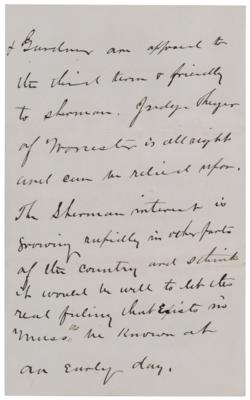 & Gardner are opposed to
the third term & friendly
to Sherman. Judge Thayer
of Worcester is all right
and can be relied upon.
The Sherman interest is
growing rapidly in other parts
of the country and I think
it would be well to let the
real feeling that exists in
Mass be known at
an early day.